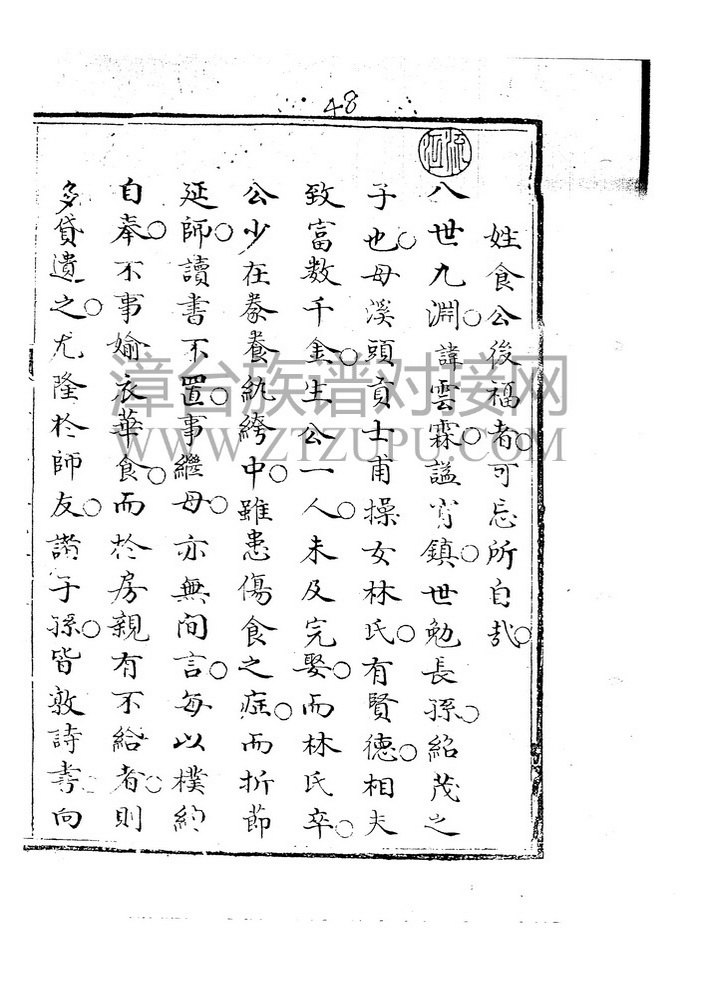 48
流江
姓食公後福者可忘所自哉
八世九淵諱雲霖謚 鎮世勉長孫紹茂之
子也母溪頭貢士甫操女林氏有賢德相夫
致富数千金生公一人未及完娶而林氏卒
公少在豢養紈絝中雖患傷食之症而折節
延師讀書不置事繼母亦無间言每以樸約
自奉不事婾衣華食而於房親有不給者則
多貸遺之尤隆於師友 子孫皆敦詩書向
漳台族谱对接网
WWW.ZTZUPU.COM